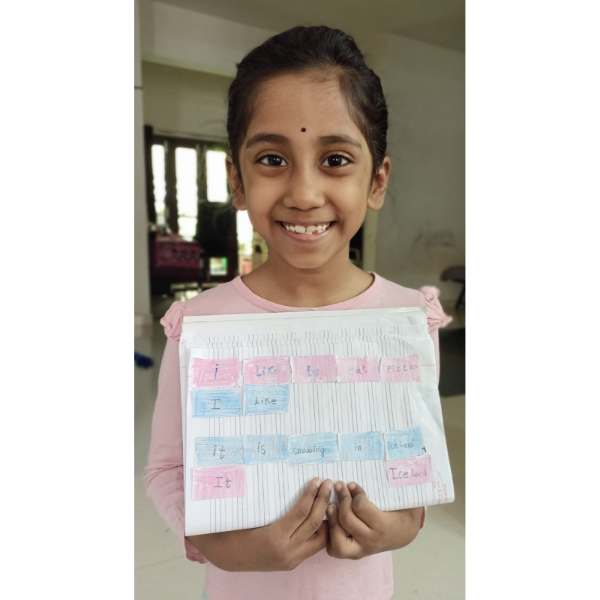 i Like to eat Pizza
I Like
it is snowing in
It Iceland